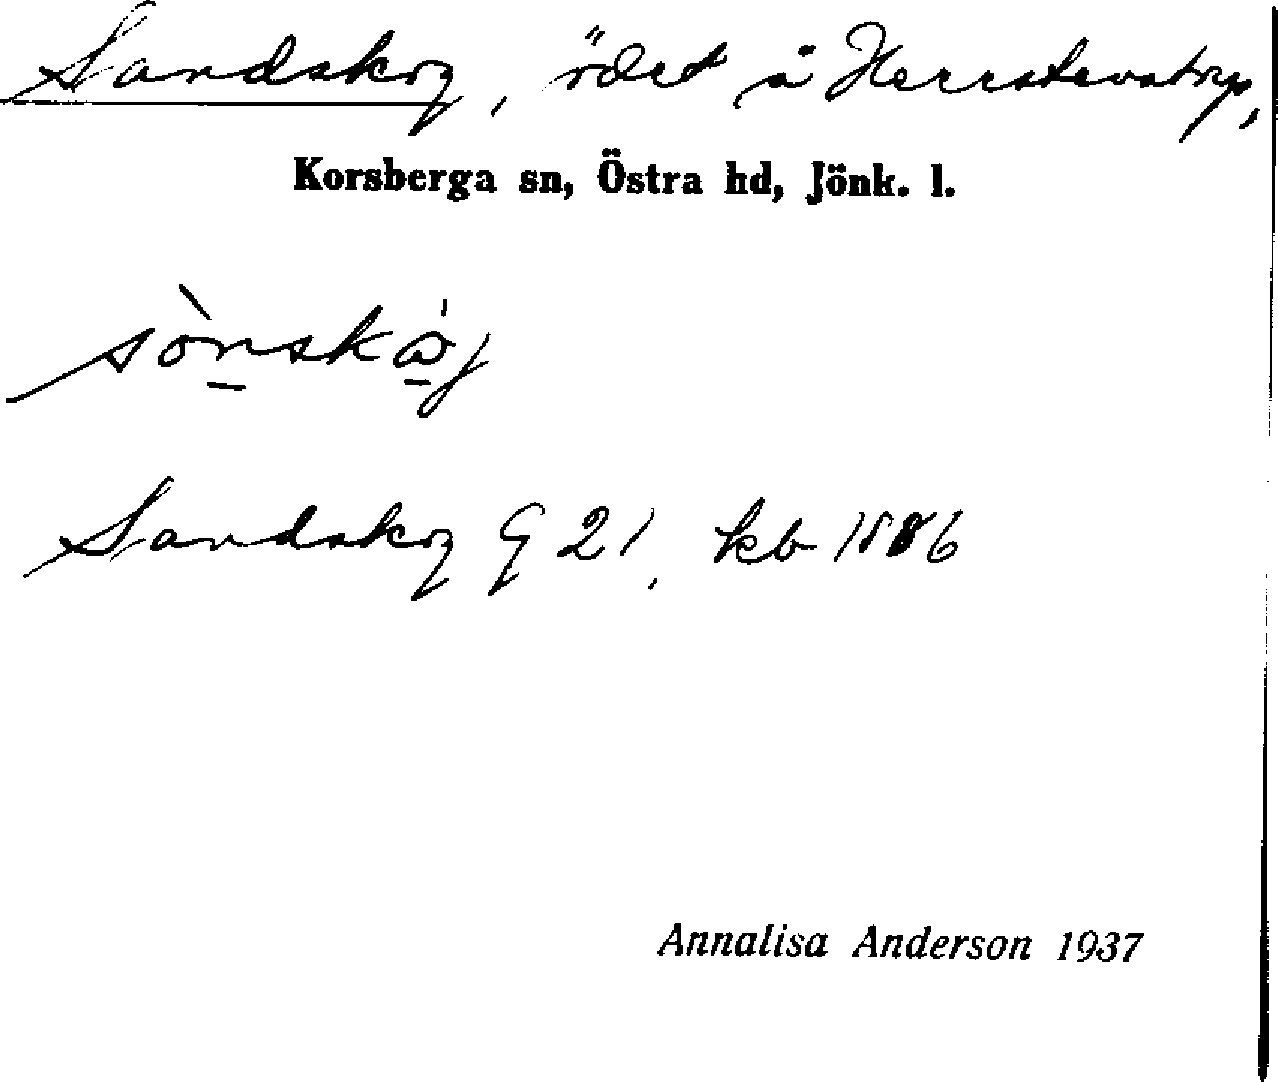 Sandskog, ödet å Herrstevstorp,
Korsberga sn, Östra hd, Jönk. l.
sònskꞷ́j
Sandskog G 21, kb 1886
Annalisa Anderson 1937